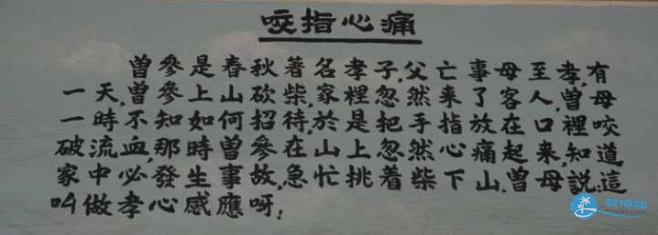 咬指心痛
曾參是春秋著名孝子,父亡事母至孝,有
一天,曾參上山砍柴,家裡忽然来了客人,曾母
一時不知如何招待,於是把手指放在口裡咬
破流血,那時曾參在山上忽然心痛起来,知道
家中必發生事故,急忙挑着柴下山,曾母說:這
叫做孝心感應呀!